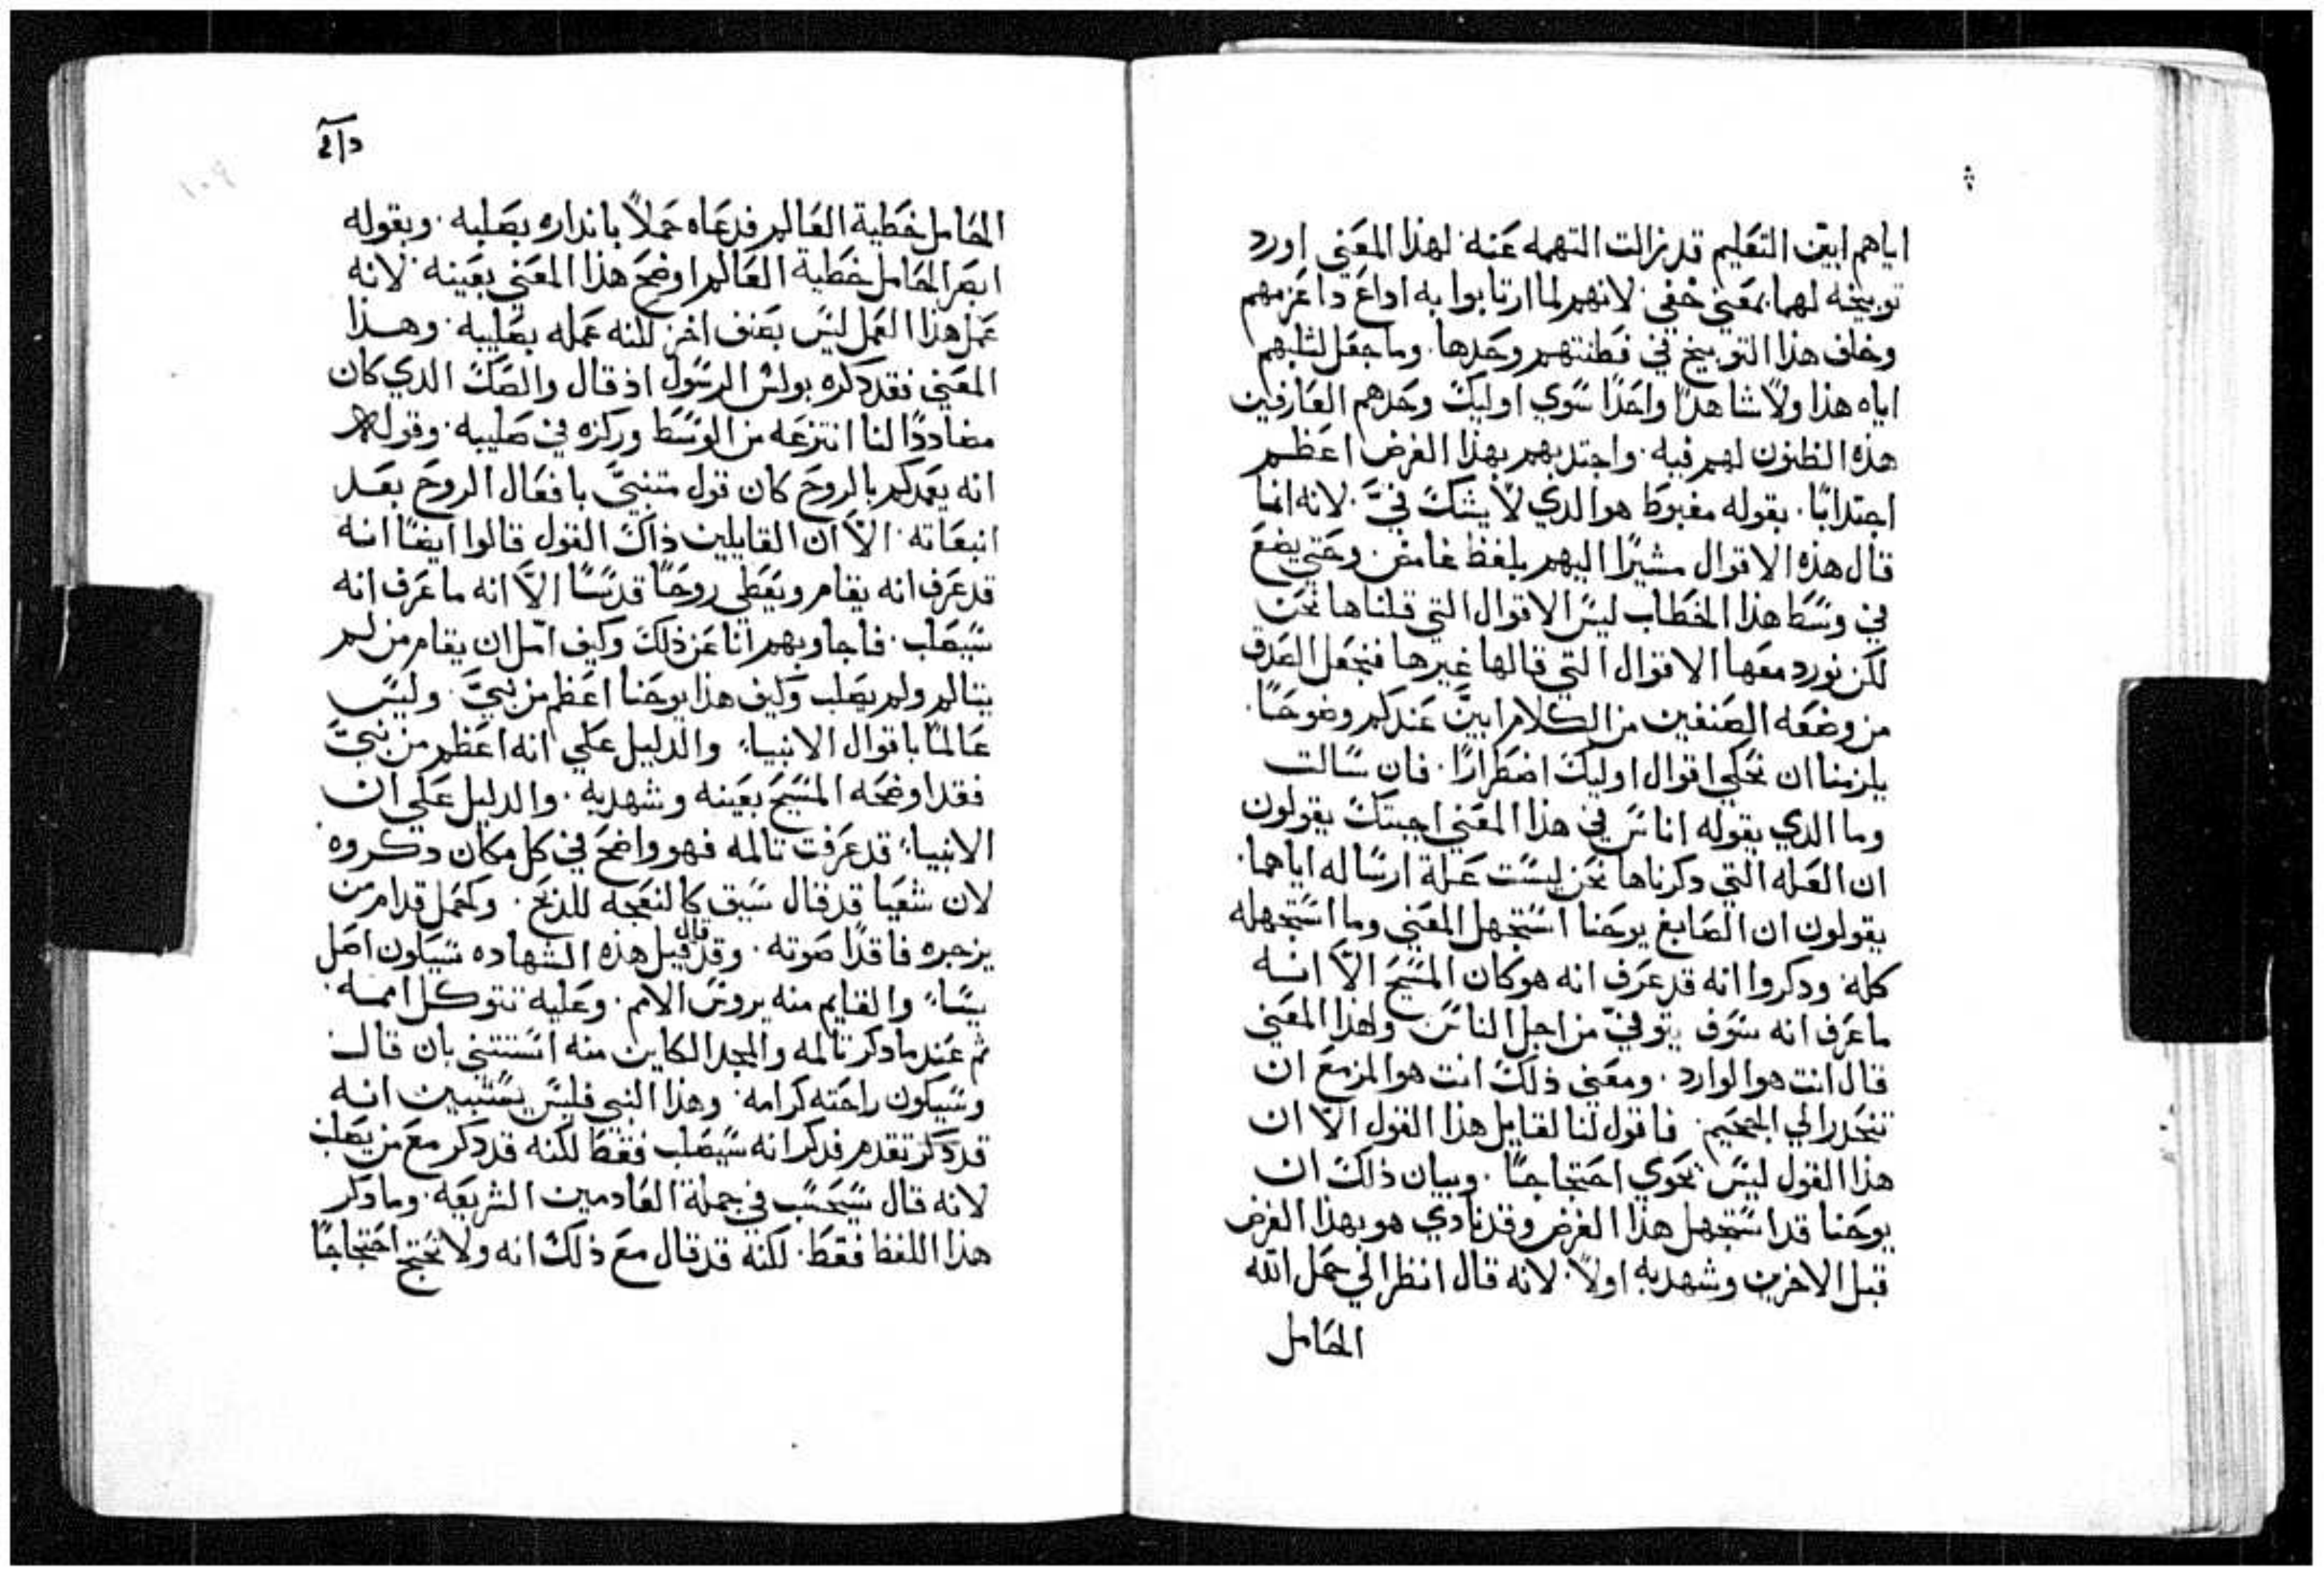 اياهم ابين التعليم قد زالت التهمه عنه. لهذا المعني اورد
توبيخه لهما بمعني خفي. لانهم لما ارتابوا به اذاع
وخلف هذا التوبيخ في فطنتهم وحدها. وما جعل لثلبهم
اياه هذا ولا شاهدًا واحدًا سوي اوليك وحدهم العارفين
هذه الظنون لهم فيه. واجتذبهم بهذا الغرض اعظم
اجتذابًا. بقوله مغبوط هو الذي لا يشك فيّ. لانه انما
قال هذه الاقوال مشيرًا اليهم بلفظ غامض. وحتي يضع
في وسط هذا الخطاب ليس الاقوال التي قلناها نحن
لكن نورد معها الاقوال التي قالها غيرها فنجعل الصدق
من وضعه الصنفين من الكلام ابين عندكم وضوحًا.
يلزمنا ان نحكي اقوال اوليك اضطرارًا. فان سالت
وما الدي يقوله اناس في هذا المعني اجبتك يقولون
ان العله التي دكرناها نحن ليست علة ارساله اياهما.
يقولون ان الصابغ يوحنا استجهل المعني وما استجهله
كله. ودكروا انه قد عرف انه هو كان المسيح الّا انه
ما عرف انه سوف يتوفيّ من اجل الناس ولهذا المعني
قال انت هو الوارد. ومعني ذلك انت هو المزمع ان
تنحدر الي الجحيم. فاقول لنا لقايل هذا القول الّا ان
هذا القول ليس يحوي احتجاجًا. وبيان ذلك ان
يوحنا قد استجهل هذا الغرض وقد نادي هو بهذا الغرض
قبل الاخرين وشهد به اولاً. لانه قال انظر الي حمل الله
الحامل
الحامل خطية العالم فدعاه حملاً بانداره بصلبه. وبقوله
ابصر الحامل خطية العالم اوضح هذا المعني بعينه. لانه
عمل هذا العمل ليس بصنف اخر لكنه عمله بصليبه. وهذا
المعني فقد دكره بولس الرسول اذ قال والصك الدي كان
مضاددًا لنا انتزعه من الوسط وركزه في صليبه. وقوله
انه يعمدكم بالروح كان قول متنبيّ بافعال الروح بعد
انبعاثه. الاّ ان القايلين ذاك القول قالوا ايضًا انه
قد عرف انه يقام ويعطي روحًا قدسًا الاّ انه ما عرف انه
سيصلب. فاجاوبهم انا عن ذلك وكيف امل ان يقام من لم
يتالم ولم يصلب وكيف هذا يوحنا اعظم من نبيّ. وليس
عالمًا باقوال الانبياء. والدليل علي انه اعظم من نبيّ
فقد اوضحه المسيح بعينه وشهد به. والدليل علي ان
الانبياء قد عرفت تالمه فهو واضح في كل مكان دكروه
لان شعيا قد قال سيق كالنعجه للذبح. وكحمل قدام من
يزجره فاقدًا صوته. وقد قال قبل هذه الشهاده سيكون اصل
يسا. والقايم منه يروس الامم. وعليه تتوكل امه.
ثم عند ما دكر تالمه والمجد الكاين منه استثني بان قال
وسيكون راحته كرامه. وهذا النبي فليس يستبين انه
قد دكر تقدم فدكر انه سيصلب فقط لكنه قد دكر مع من يصلب
لانه قال سيحسب في جملة العادمين الشريعه. وما دكر
هذا اللفظ فقط. لكنه قد قال مع ذلك انه ولا يحتج احتجاجًا